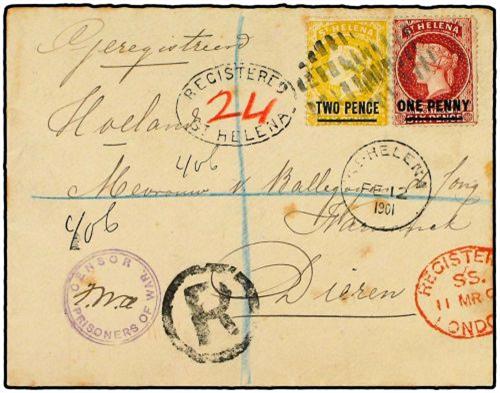 Geregistreerd
ST HELENA
TWO PENCE
ST HELENA
ONE PENNY
SIX PENCE
REGISTERED
24
ST HELENA
Holland
406
Mevrouw v. Ballegooyen de Jong
ST HELENA
FE 12
1901
406
CENSOR.
PRISONERS OF WAR.
R
Dieren
REGISTERED
SS.
11 MR
LONDON